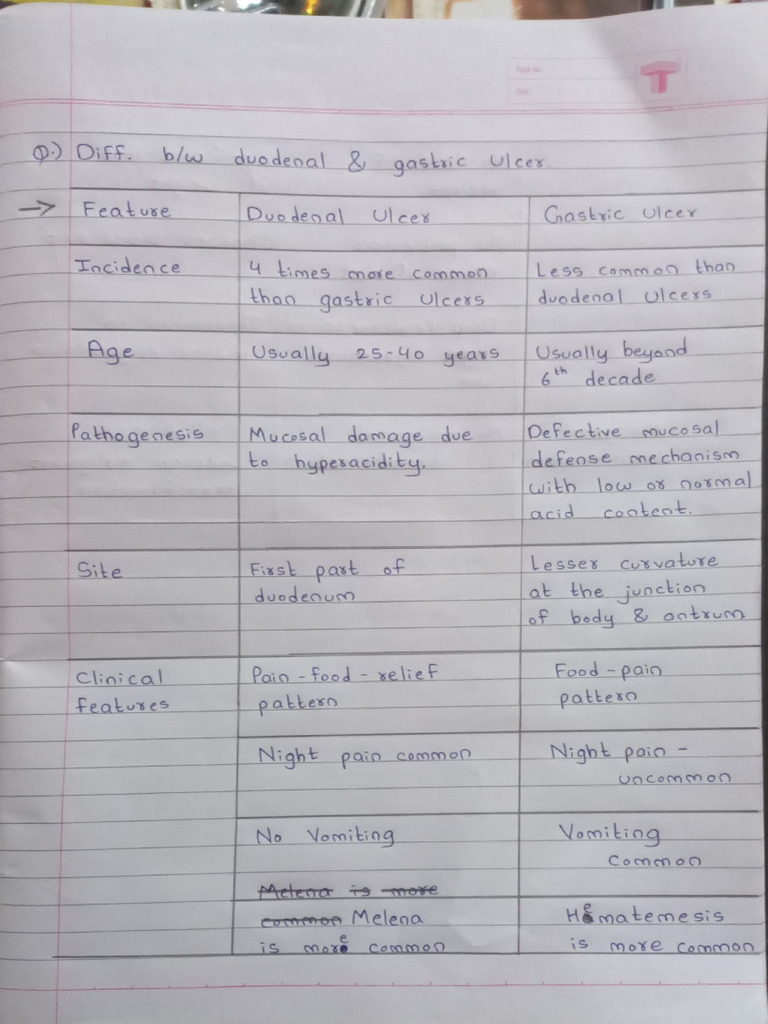 Page No.
Date / /
T
Q.) Diff. b/w duodenal & gastric Ulcer.
→ Feature Duodenal Ulcer Gastric Ulcer
Incidence 4 times more common Less common than
than gastric Ulcers duodenal Ulcers
Age Usually 25-40 years Usually beyond
6th decade
Pathogenesis Mucosal damage due Defective mucosal
to hyperacidity. defense mechanism
with low or normal
acid content.
Site First part of Lesser curvature
duodenum at the junction
of body & antrum
Clinical Pain-food-relief Food-pain
features pattern pattern
Night pain common Night pain -
uncommon
No Vomiting Vomiting
common
Melena is more
common Melena Hematemesis
is more common is more common